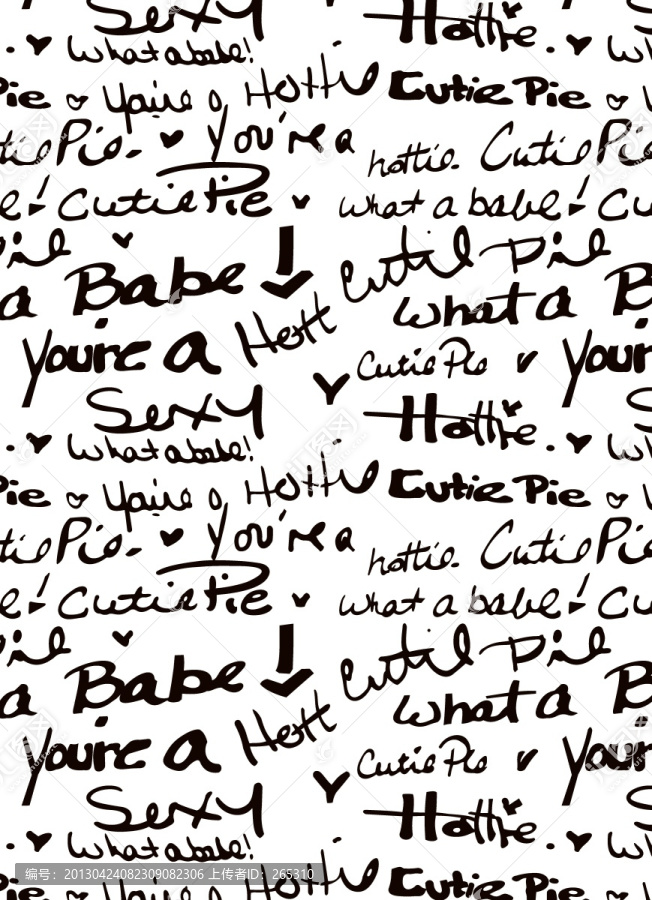 Sexy Hottie
what a babe!
Pie you're a Hottie Cutie Pie
Cutie Pie. You're a hottie. Cutie Pie
Cutie Pie what a babe! Cu
Pie Cutie Pie
a Babe what a B
you're a Hott Cutie Pie you're
Sexy Hottie.
what a babe!
Pie you're a Hottie Cutie Pie
Cutie Pie. You're a hottie. Cutie Pie
Cutie Pie what a babe! Cu
Pie Cutie Pie
a Babe what a B
you're a Hott Cutie Pie you're
Sexy Hottie.
what a babe!
编号：20130424082309082306 上传者ID：265310
Pie you're a Hottie Cutie Pie